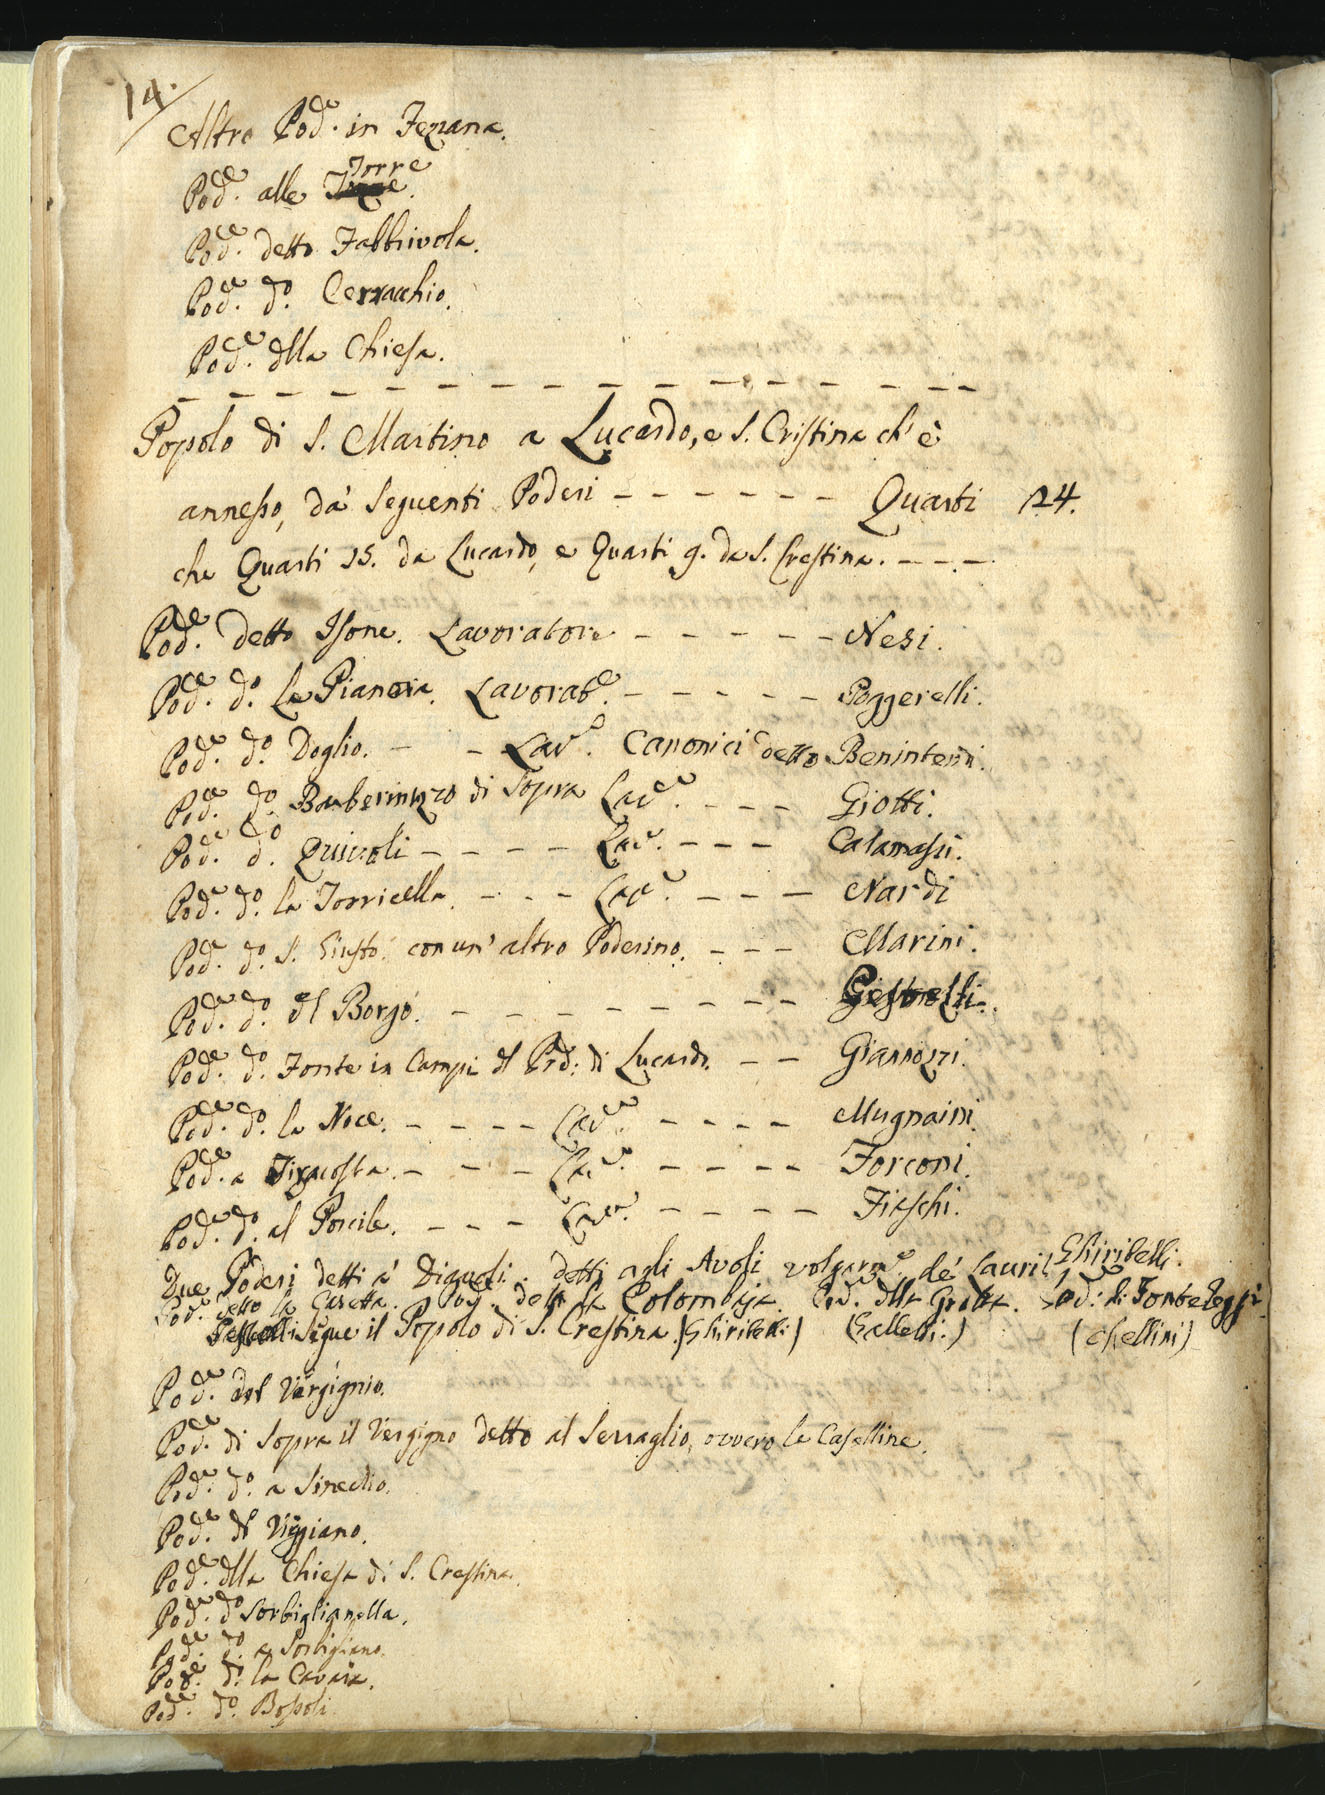 14.
Altro Pod.e in Jezzana.
Pod.e alle Torre
Pod.e detto Fabbrivola.
Pod.e d.o Cerracchio.
Pod.e dlla Chiesa.
Popolo di S. Martino a Lucardo, e S. Cristina ch'è
annesso, da' Seguenti Poderi - - - - - - Quarti 24.
che Quarti 15. da Lucardo, e Quarti 9. da S. Crestina. - - - -
Pod.e detto Isone. Lavoratore - - - - - Nesi.
Pod.e d.o la Pianora. Lavorat.e - - - - - Poggerelli.
Pod.e d.o Doglio. - - Lav.e Canonici detto Benintendi.
Pod.e d.o Barberinuzzo di Sopra Lav.e - - - Giotti.
Pod.e d.o Quivoli - - - - Lav.e - - - Calamassi.
Pod.e d.o la Torricella. - - - Lav.e - - - Nardi
Pod.e d.o S. Giusto. con un' altro Poderino. - - - Marini.
Pod.e d.o il Borgo. - - - - - - - -
Pod.e d.o Fonte in Campi dl Pod. di Lucardo. - - Giannozzi.
Pod.e d.o la Noce. - - - - Lav.e - - - - Mugnaini.
Pod.e a Tiracosta. - - - Lav.e - - - - Forconi.
Pod.e d.o al Porcile. - - - Lav.e - - - - Fieschi.
Due Poderi detti a' Diavoli. detti agli Avoli volgarm.e de' Lauri Ghiribelli.
Pod.e detto la Casetta. Pod. detto la Colombaja. Pod. dlla Grotta. Pod. di Fonte Peggi
Segue il Popolo di S. Crestina. (Ghiribelli) (Galletti.) (Chellini)
Pod.e del Vergignio.
Pod.e di Sopra il Vergigno detto al Serraglio, ovvero le Caselline.
Pod.e d.o a
Pod.e dl Viggiano.
Pod.e dlla Chiesa di S. Crestina.
Pod.e d.o Sorbiglianella.
Pod.e d.o a Sorbigliano.
Pod.e d.o la Cavaia.
Pod.e d.o Bossoli.